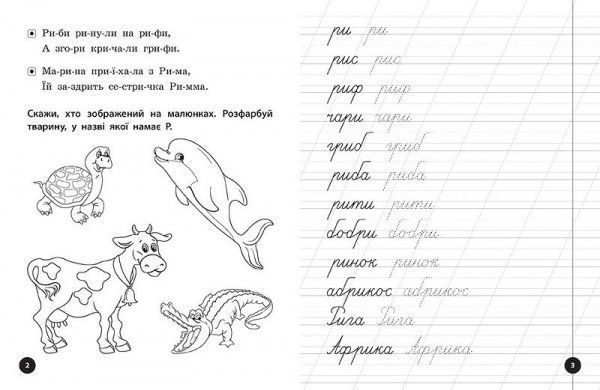 Ри-би ри-ну-ли на ри-фи,
А зго-ри кри-ча-ли гри-фи.
Ма-ри-на при-ї-ха-ла з Ри-ма,
Їй за-здрить се-стри-чка Ри-мма.
Скажи, хто зображений на малюнках. Розфарбуй
тварину, у назві якої намає Р.
2
ри ри
рис рис
риф риф
чари чари
гриб гриб
риба риба
рити рити
бобри бобри
ринок ринок
абрикос абрикос
Рига Рига
Африка Африка
3